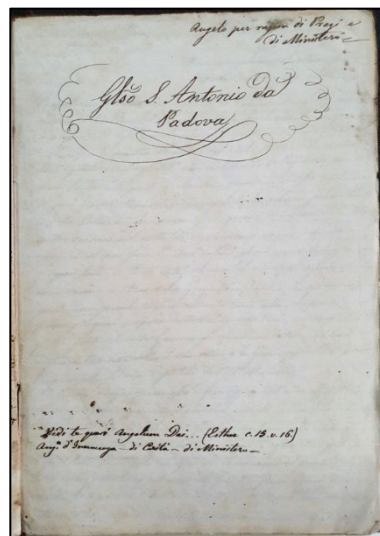 Angelo per ragion di Pregi e
di Ministero
Glso S. Antonio da
Padova
Vidi te quasi Angelum Dei... (Esther c. 15. v. 16)
Angº d'Innocenza - di Carità - di Ministero -